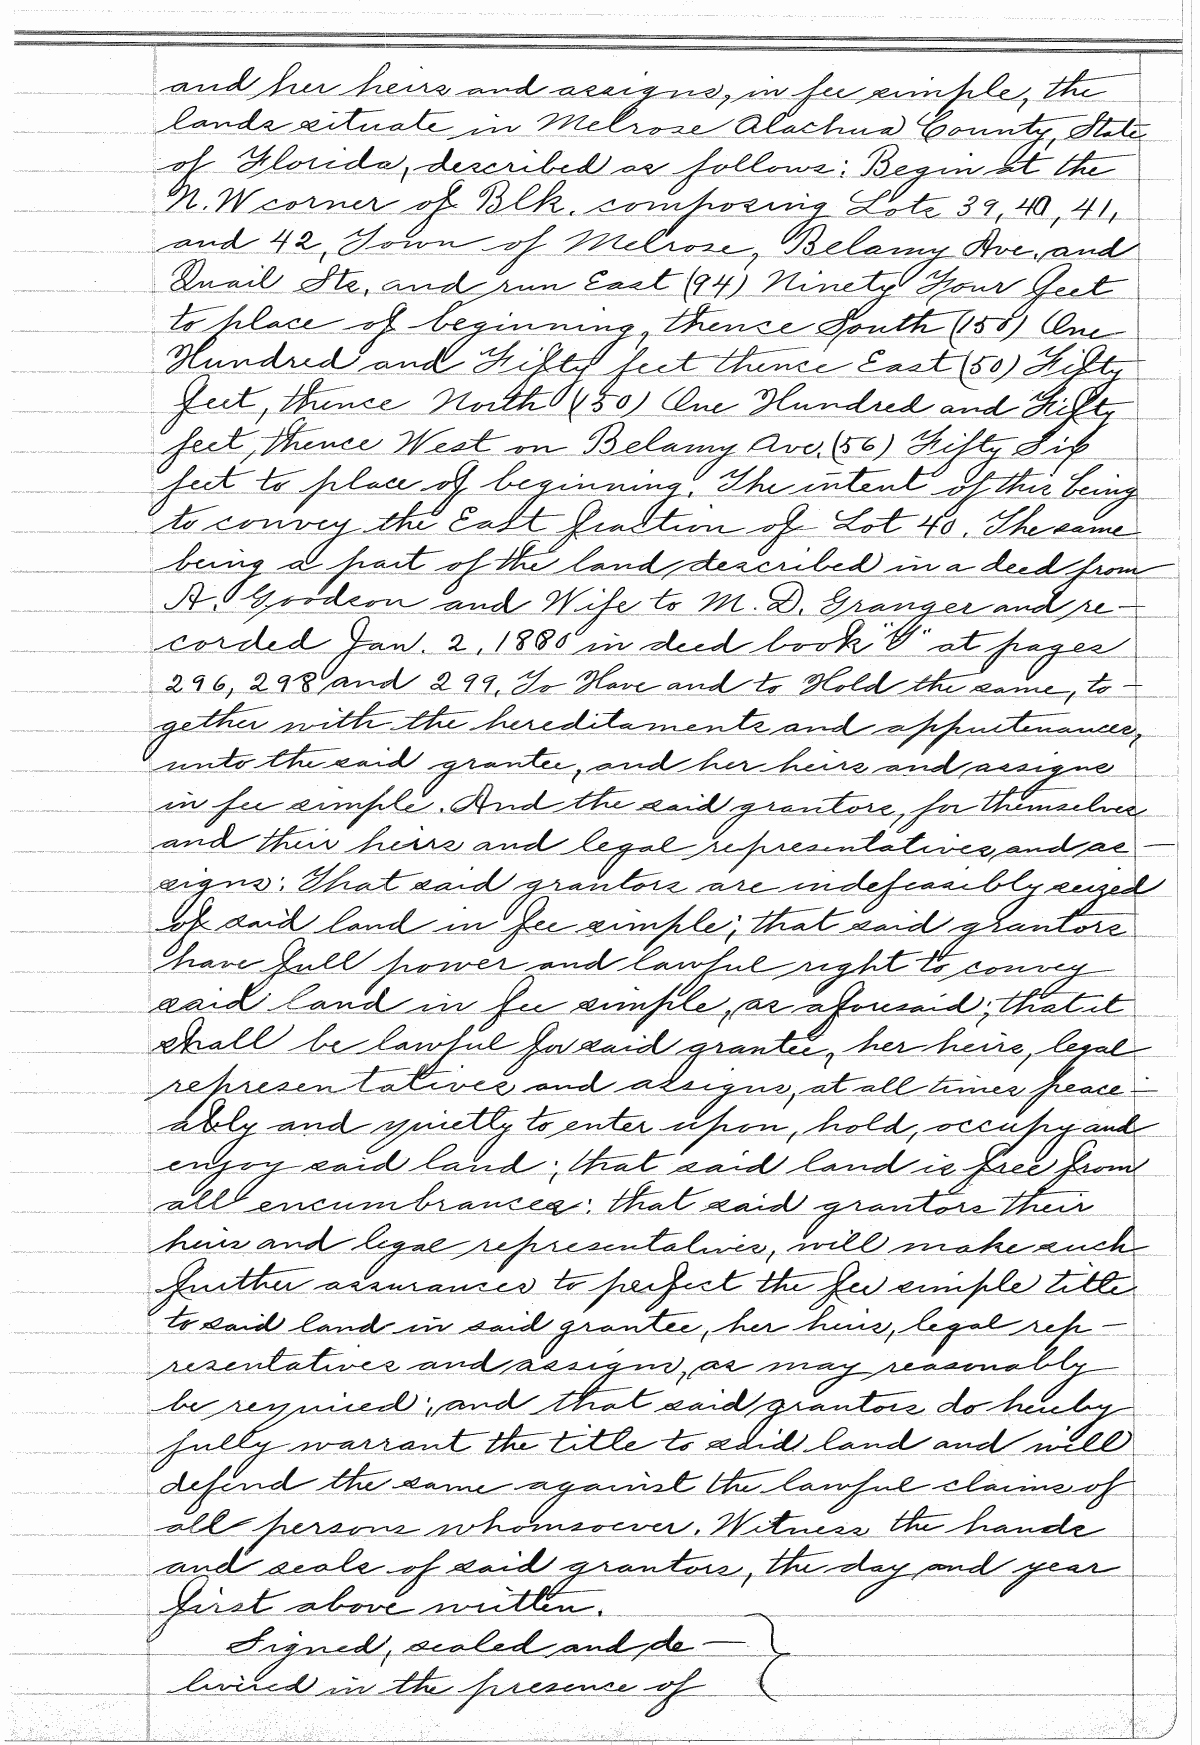 and her heirs and assigns, in fee simple, the
lands situate in Melrose Alachua County, State
of Florida, described as follows: Begin at the
N.W corner of Blk. composing Lots 39, 40, 41,
and 42, Town of Melrose, Belamy Ave. and
Quail Sts. and run East (94) Ninety Four feet
to place of beginning, thence South (150) One
Hundred and Fifty feet thence East (50) Fifty
feet, thence North (150) One Hundred and Fifty
feet, thence West on Belamy Ave. (56) Fifty Six
feet to place of beginning. The intent of this being
to convey the East fraction of Lot 40. The same
being a part of the land described in a deed from
A. Goodson and Wife to M. D. Granger and re-
corded Jan. 2, 1880 in deed book "O" at pages
296, 298 and 299. To Have and to Hold the same, to-
gether with the hereditaments and appurtenances,
unto the said grantee, and her heirs and assigns
in fee simple. And the said grantors, for themselves
and their heirs and legal representatives and as-
signs: That said grantors are indefeasibly seized
of said land in fee simple; that said grantors
have full power and lawful right to convey
said land in fee simple, as aforesaid; that it
shall be lawful for said grantee, her heirs, legal
representatives and assigns, at all times peace-
ably and quietly to enter upon, hold, occupy and
enjoy said land; that said land is free from
all encumbrances: that said grantors their
heirs and legal representatives, will make such
further assurances to perfect the fee simple title
to said land in said grantee, her heirs, legal rep-
resentatives and assigns, as may reasonably
be required; and that said grantors do hereby
fully warrant the title to said land and will
defend the same against the lawful claims of
all persons whomsoever. Witness the hands
and seals of said grantors, the day and year
first above written.
Signed, sealed and de-
livered in the presence of